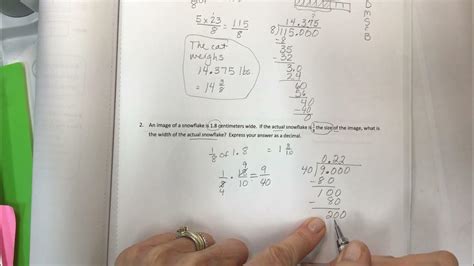 5 x 23 = 115
8 8
The cat
weighs
14.375 lbs
= 14 3/8
14.375
8 115.000
-8
35
-32
3.0
2.4
60
56
40
-40
0
D
M
S
B
2. An image of a snowflake is 1.8 centimeters wide. If the actual snowflake is 1/8 the size of the image, what is
the width of the actual snowflake? Express your answer as a decimal.
1/8 of 1.8 = 1 8/10
1/8 · 18/10 = 9/40
9
4
0.22
40 9.000
-80
100
-80
200